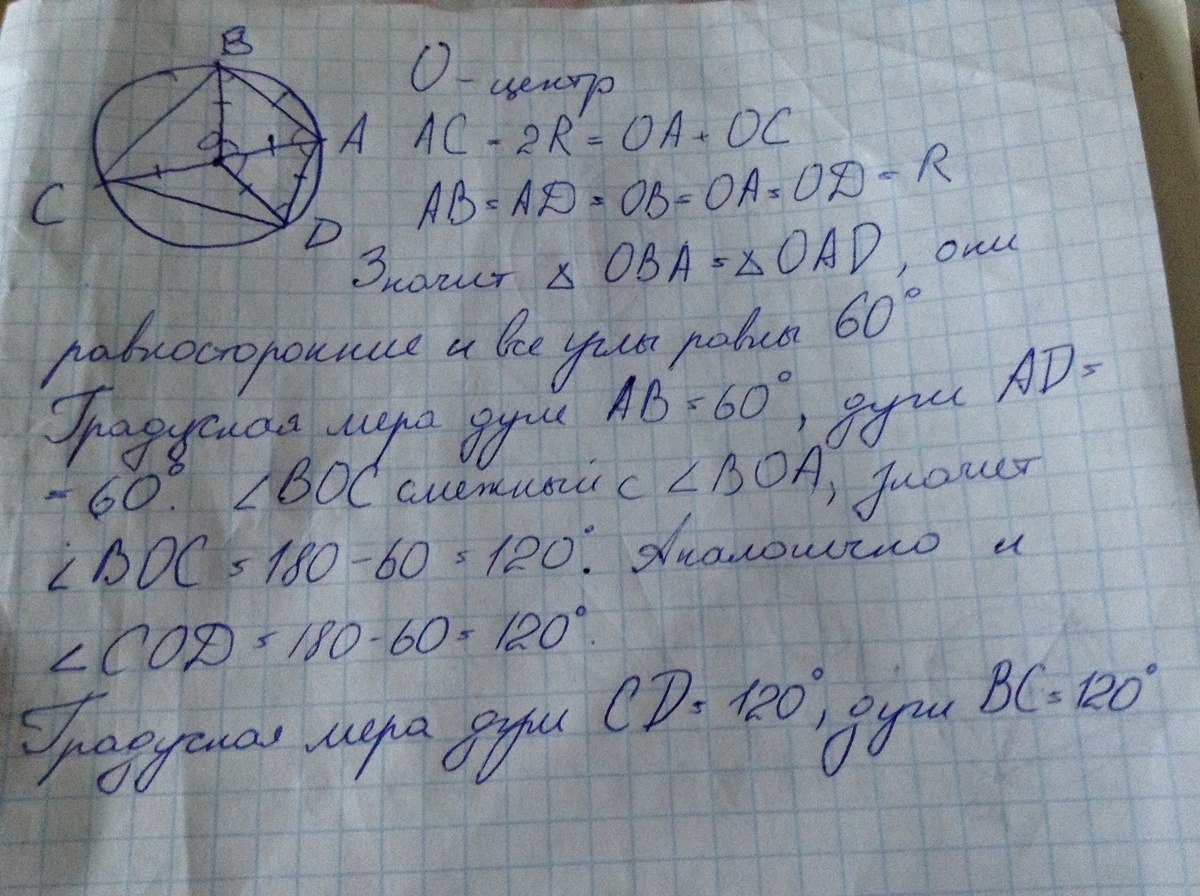 B
О - центр
A
AC = 2R = OA + OC
O
C
AB = AD = OB = OA = OD = R
D
Значит △ OBA = △ OAD, они
равносторонние и все углы равны 60°
Градусная мера дуги AB = 60°, дуги AD =
= 60°. ∠BOC смежный с ∠BOA, значит
∠BOC = 180 - 60 = 120°. Аналогично и
∠COD = 180 - 60 = 120°.
Градусная мера дуги CD = 120°, дуги BC = 120°